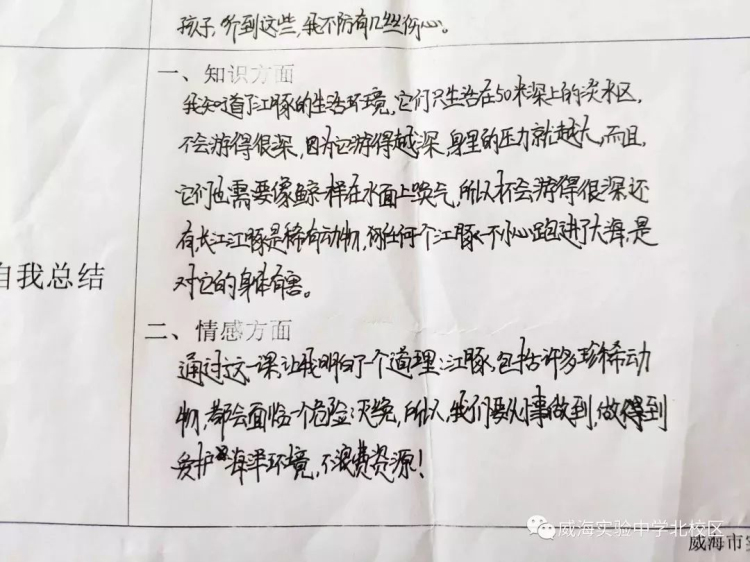 孩子,听到这些,我不防有几丝伤心。
一、知识方面
我知道了江豚的生活环境,它们只生活在50米深上的淡水区,
不会游得很深,因为它游得越深,身里的压力就越大,而且,
它们也需要像鲸一样在水面上唤气,所以不会游得很深,还
有长江江豚是稀有动物,任何个江豚一不小心跑进了大海,是
对它的身体有害。
自我总结
二、情感方面
通过这一课,让我明白了一个道理:江豚,包括许多珍稀动
物,都会面临一个危险:灭绝,所以,我们要从事做到,做得到
爱护海洋环境,不浪费资源!
威海实验中学北校区
威海市实